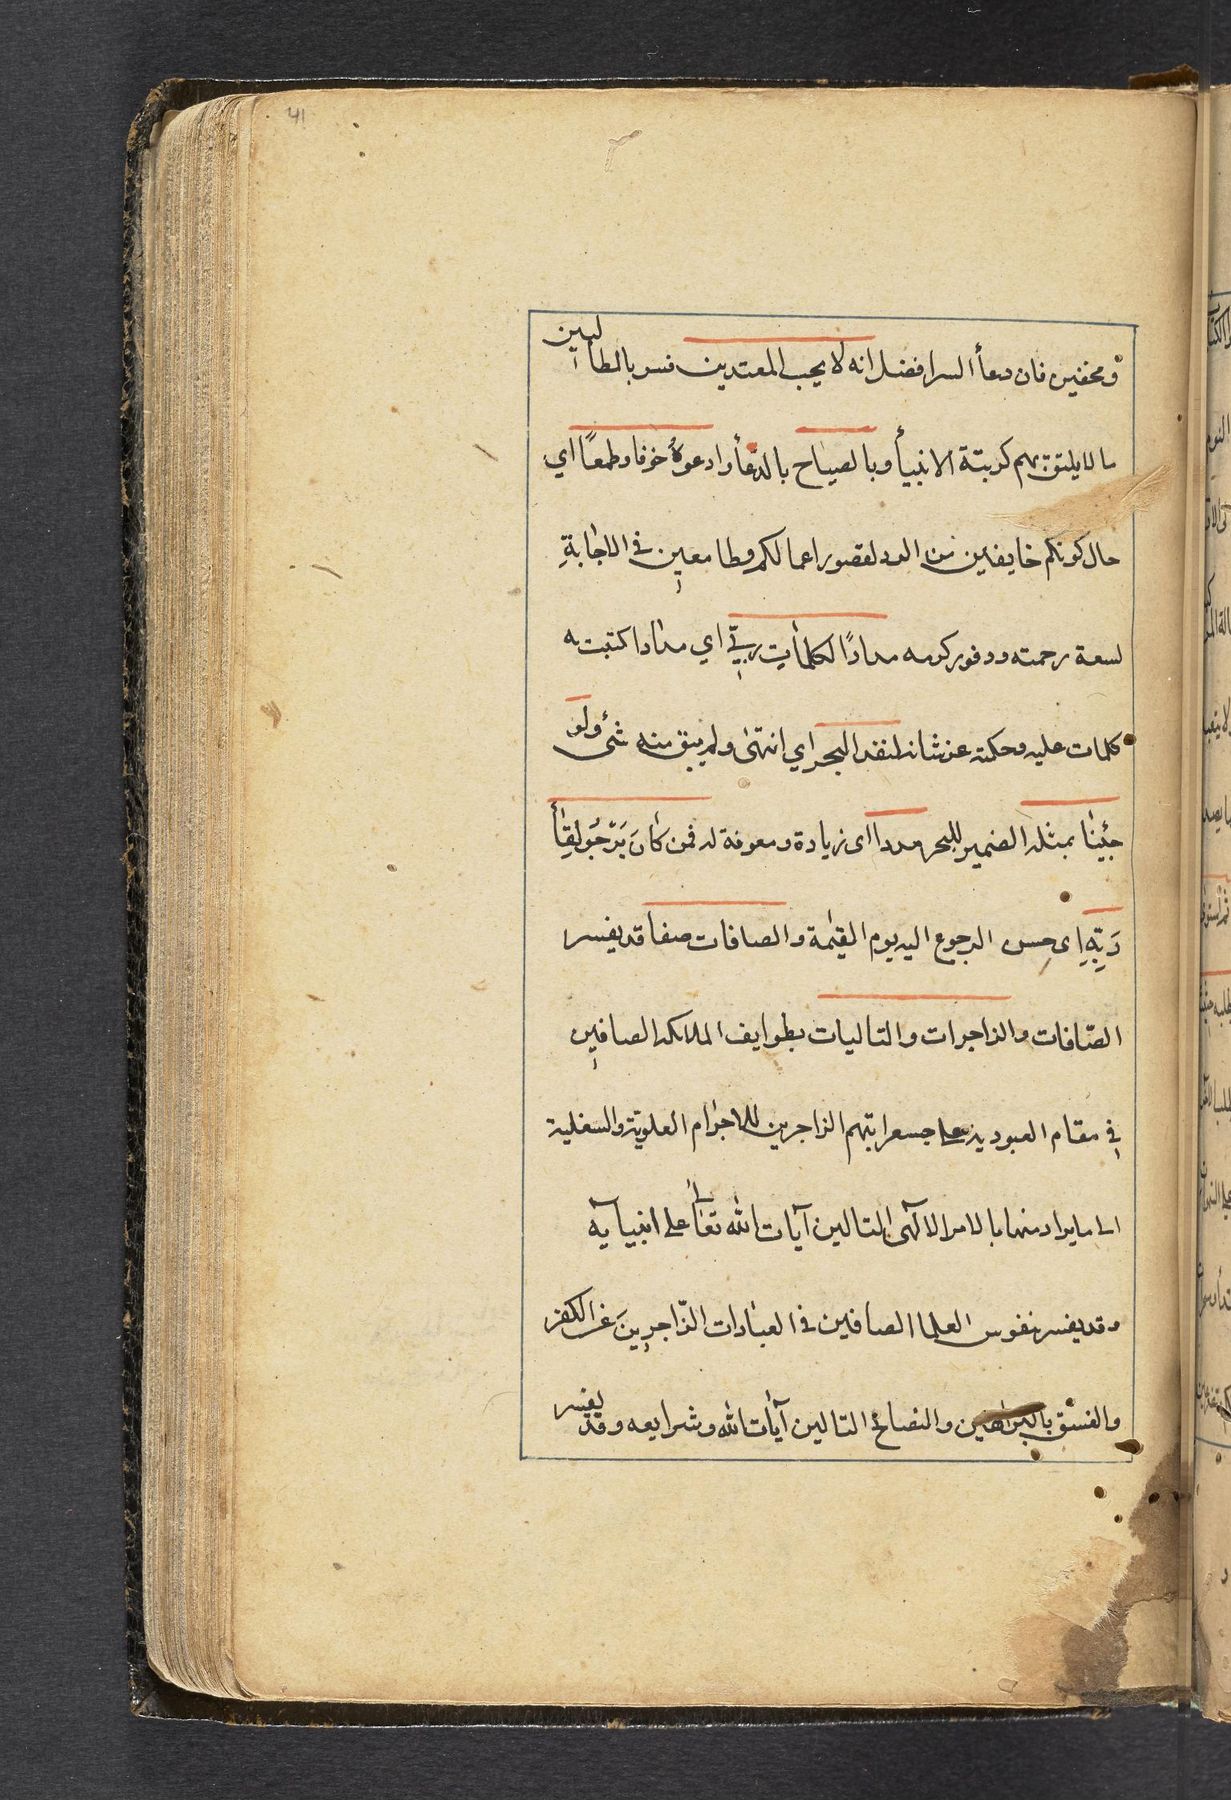 41
ومخفين فان دعأ السر افضل انه لا يحب المعتدين فسر بالطالبين
ما لا يليق بهم كرتبة الانبيأ وبالصياح بالدعأ وادعوهُ خوفا وطمعًا اي
حال كونكم خايفين من الرد لقصور اعمالكم وطامعين في الاجابةِ
لسعة رحمته ووفور كرمه مدادًا لكلمات ربّي اي مدادا كتبت به
كلمات علمه وحكمته عز شانه لنفد البحر اي انتهىٰ ولم يبق منه شئ ولو
جئينا بمثله الضمير للبحر مددا اى زيادة ومعوفة له فمن كانَ يَرْجُو لِقأ
رَبِّهِ اى حسن الرجوع اليه يوم القيٰمة والصافات صفا قد يفسر
الصّافات والزاجرات والتاليات بطوايف الملائكه الصافين
في مقام العبودية على حسب مراتبهم الزاجرين للاجرام العلوية والسفلية
الى ما يراد منها بالامر الالٓهى التالين آيات الله تعالىٰ على انبيآيه
وقد يفسر بنفوس العلما الصافين في العبادات الزّاجرِينَ عَن الكفر
والفسق بالبراهين والنصائح التالين آيات الله وشرايعه وقد يفسر